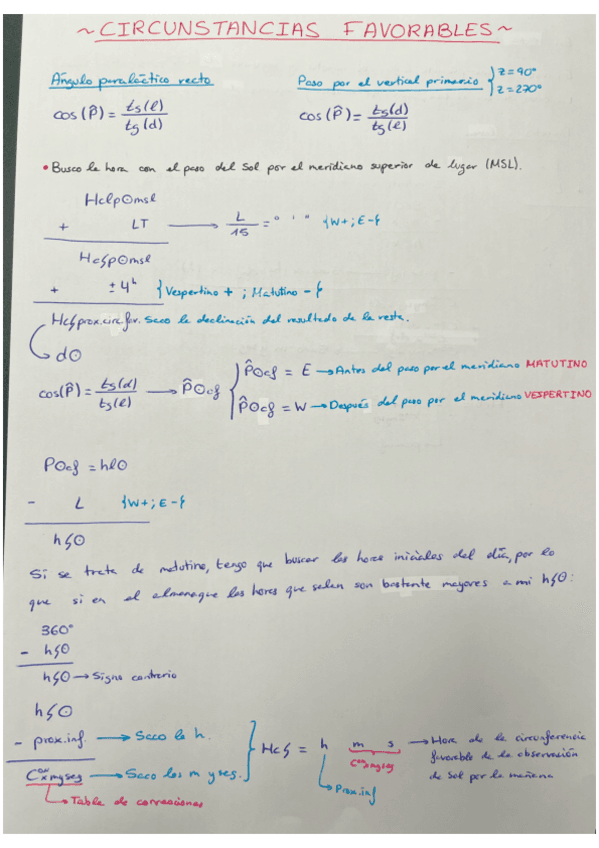 ~CIRCUNSTANCIAS FAVORABLES~
Ángulo paraláctico recto
cos (P̂) = tg(l) / tg(d)
Paso por el vertical primario { z=90º
z=270º
cos (P̂) = tg(d) / tg(l)
• Busco la hora con el paso del Sol por el meridiano superior de lugar (MSL).
Hclp⊙msl
+ LT → L/15 = º ' " {W+; E-}
HcGp⊙msl
+ ±4ʰ {Vespertino + ; Matutino -}
HcG prox.circ.fav. Saco la declinación del resultado de la resta.
d⊙
cos(P̂) = tg(d) / tg(l) → P̂⊙cf
P̂⊙cf = E → Antes del paso por el meridiano MATUTINO
P̂⊙cf = W → Después del paso por el meridiano VESPERTINO
P⊙cf = hl⊙
- L {W+; E-}
hG⊙
Si se trata de matutino, tengo que buscar las horas iniciales del día, por lo
que si en el almanaque las horas que salen son bastante mayores a mi hG⊙:
360º
- hG⊙
hG⊙ → Signo contrario
hG⊙
- prox.inf. → Saco la h.
Cºⁿxmyseg → Saco los m y seg.
Tabla de correcciones
HcG = h m s → Hora de la circunferencia
Cºⁿxmyseg
favorable de la observación
de Sol por la mañana
Prox.inf